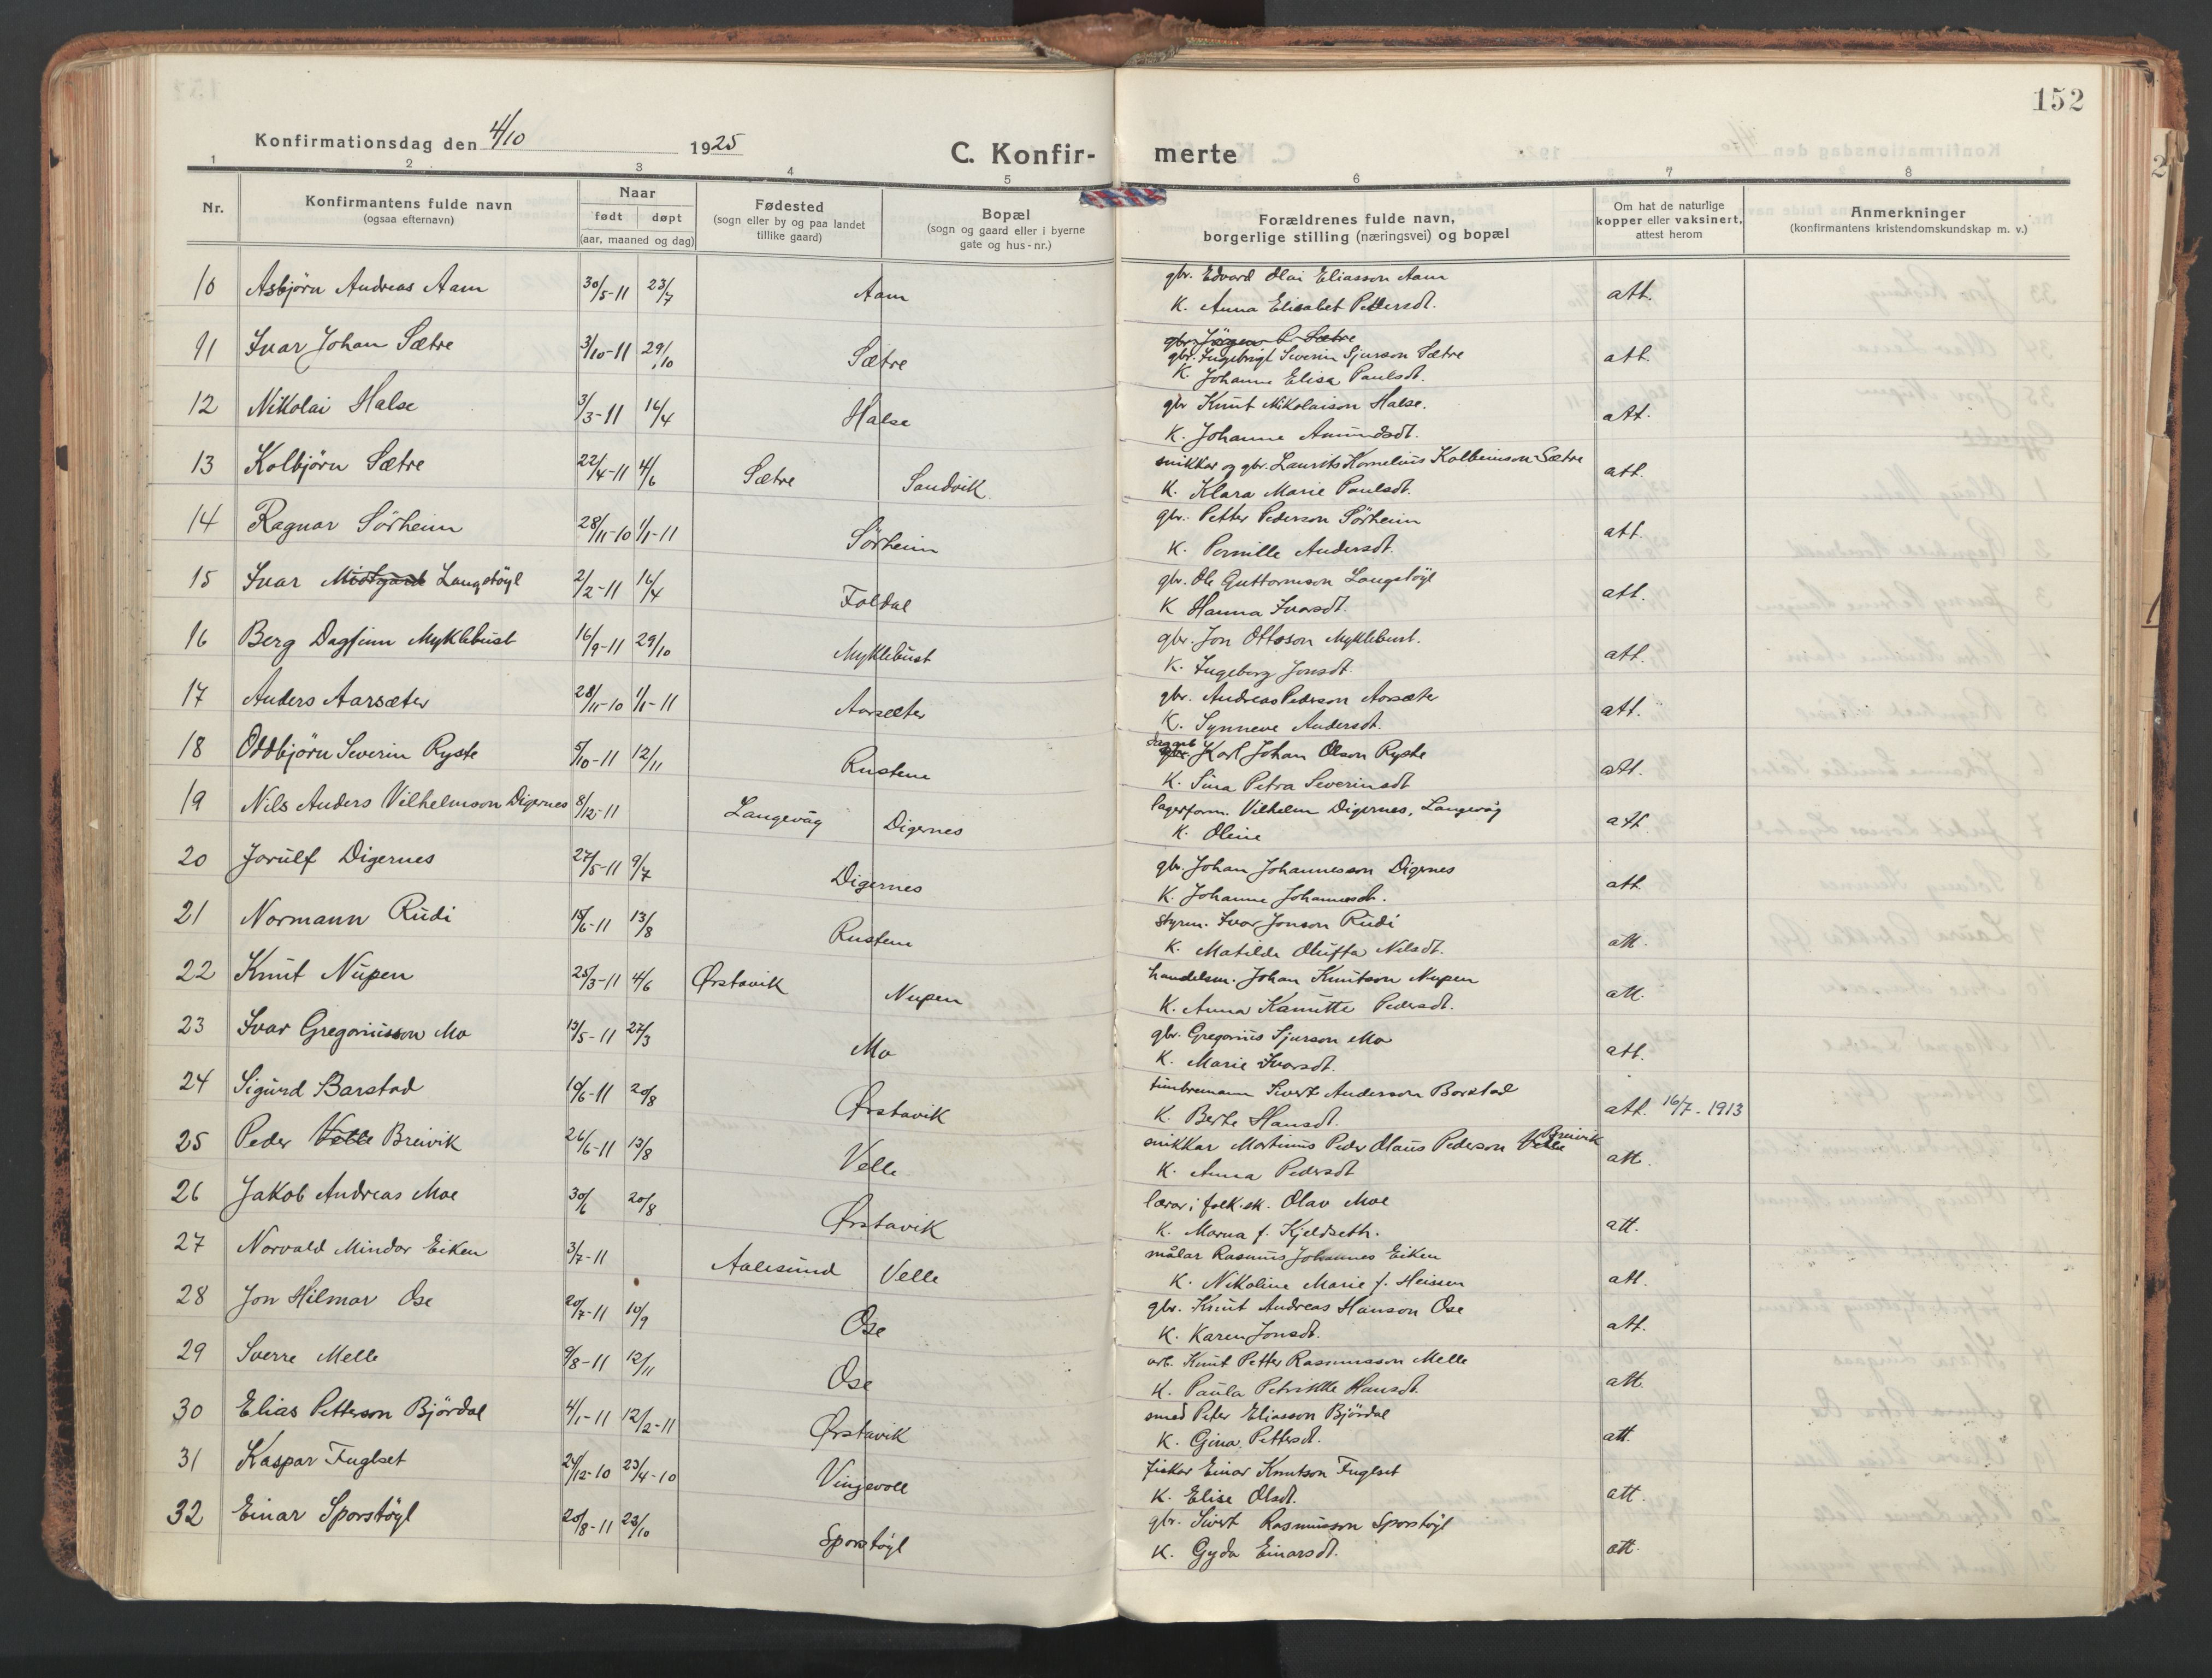 152
Konfirmationsdag den 4/10 1925
C. Konfir- merte
1 2 3 4 5 6 7 8
Nr.
Konfirmantens fulde navn
(ogsaa efternavn)
Naar
født døpt
(aar, maaned og dag)
Fødested
(sogn eller by og paa landet
tillike gaard)
Bopæl
(sogn og gaard eller i byerne
gate og hus-nr.)
Forældrenes fulde navn,
borgerlige stilling (næringsvei) og bopæl
Om hat de naturlige
kopper eller vaksinert,
attest herom
Anmerkninger
(konfirmantens kristendomskundskap m. v.)
10 Asbjørn Andreas Aam 30/5-11 23/7 Aam gbr. Edvard Olai Eliasson Aam att.
K. Anna Elisabet Pettersdt.
gbr. Jørgen P. Sætre
11 Ivar Johan Sætre 3/10-11 29/10 Sætre gbr. Ingebrigt Severin Sjurson Sætre att.
K. Johanne Elisa Paulsdt.
12 Nikolai Halse 3/3-11 16/4 Halse gbr Knut Nikolaison Halse. att.
K. Johanne Amundsdt.
13 Kolbjørn Sætre 22/4-11 4/6 Sætre Sandvik snikkar og gbr. Laurits Kornelius Kolbeinson Sætre att.
K. Klara Marie Paulsdt.
14 Ragnar Sørheim 28/11-10 1/1-11 Sørheim gbr. Petter Pederson Sørheim att.
K. Pernille Andersdt.
15 Ivar Midtgård Langstøyl 2/2-11 16/4 Foldal gbr. Ole Guttormson Langstøyl att.
K Hanna Ivarsdt.
16 Berg Dagfinn Myklebust 16/9-11 29/10 Myklebust gbr. Jon Ottoson Myklebust. att.
K. Ingeborg Jonsdt.
17 Anders Aarsæter 28/11-10 1/1-11 Aarsæter gbr. Andreas Pederson Aarsæter att.
K. Synneve Andersdt.
18 Oddbjørn Severin Ryste 5/10-11 12/11 Rustene gbr. Karl Johan Olson Ryste att.
K. Sina Petra Severinsdt
19 Nils Anders Vilhelmson Digernes 8/12-11 Langevåg Digernes lagerform. Vilhelm Digernes, Langevåg att
K. Oline
20 Jorulf Digernes 27/5-11 9/7 Digernes gbr. Johan Johannesson Digernes att
K. Johanne Johannesdt.
21 Normann Rudi 18/6-11 13/8 Rustene styrm. Ivar Jonson Rudi att.
K. Matilde Oluffa Nilsdt.
22 Knut Nupen 25/3-11 4/6 Ørstavik Nupen handelsm. Johan Knutson Nupen att.
K. Anna Kanutte Pedersdt.
23 Ivar Gregoriusson Mo 13/5-11 27/3 Mo gbr. Gregorius Sjurson Mo att.
K. Marie Ivarsdt.
24 Sigurd Barstad 10/6-11 20/8 Ørstavik timbremann Sivert Anderson Barstad att. 16/7-1913
K. Berte Hansdt.
25 Peder Velle Breivik 26/6-11 13/8 Velle snikkar Martinus Peder Olaus Pederson Velle Breivik att.
K. Anna Pedersdt
26 Jakob Andreas Moe 30/6 20/8 Ørstavik lærar i folk.sk. Olav Moe att.
K. Marna f. Kjeldseth.
27 Norvald Mindor Eiken 3/7-11 Aalesund Velle målar Rasmus Johannes Eiken att.
K. Nikoline Marie f. Heissen
28 Jon Hilmar Ose 20/7-11 10/9 Ose gbr. Knut Andreas Hanson Ose att.
K. Karen Jonsdt.
29 Sverre Melle 9/8-11 12/11 Ose arb. Knut Petter Rasmusson Melle att.
K. Paula Petrikke Hansdt.
30 Elias Petterson Bjørdal 4/1-11 12/2-11 Ørstavik smed Peter Eliasson Bjørdal att.
K. Gina Pettersdt.
31 Kaspar Fuglset 24/12-10 23/4-10 Vingevoll fiskar Einar Knutson Fuglset att.
K. Elise Olsdt.
32 Einar Sporstøyl 20/8-11 23/10 Sporstøyl gbr. Sivert Rasmusson Sporstøyl att.
K. Gyda Einarsdt.